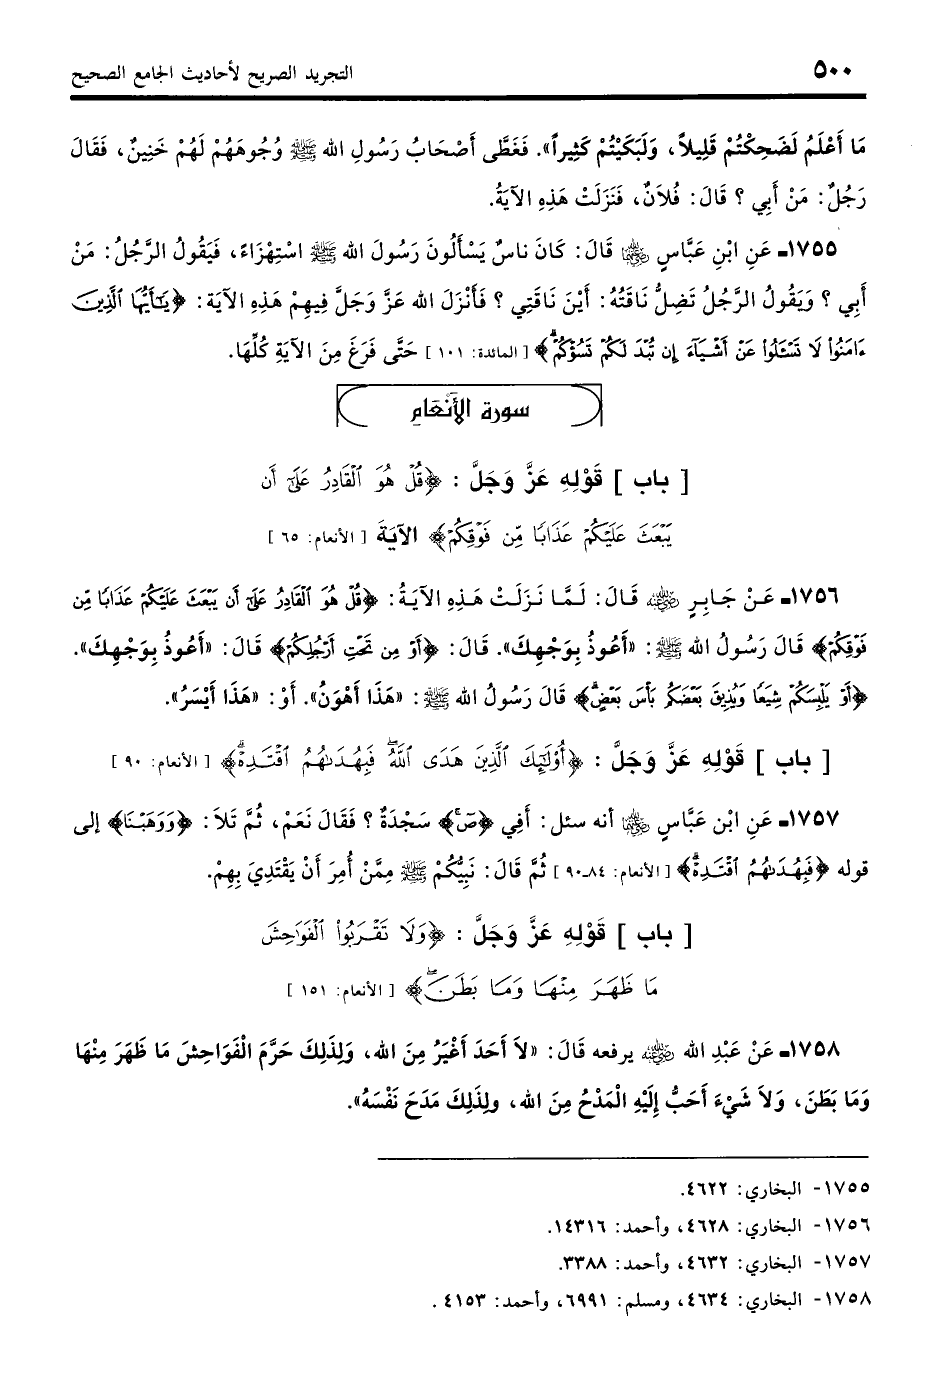 ٥٠٠ التجريد الصريح لأحاديث الجامع الصحيح
مَا أَعْلَمُ لَضَحِكْتُمْ قَلِيلاً، وَلَبَكَيْتُمْ كَثِيراً». فَغَطَّى أَصْحَابُ رَسُولِ الله ﷺ وُجُوهَهُمْ لَهُمْ خَنِينٌ، فَقَالَ
رَجُلٌ: مَنْ أَبِي ؟ قَالَ: فُلاَنٌ، فَنَزَلَتْ هَذِهِ الآيَةُ.
١٧٥٥ـ عَنِ ابْنِ عَبَّاسٍ ﵄ قَالَ: كَانَ ناسٌ يَسْأَلُونَ رَسُولَ الله ﷺ اسْتِهْزَاءً، فَيَقُولُ الرَّجُلُ: مَنْ
أَبِي ؟ وَيَقُولُ الرَّجُلُ تَضِلُّ نَاقَتُهُ: أَيْنَ نَاقَتِي ؟ فَأَنْزَلَ الله عَزَّ وَجَلَّ فِيهِمْ هَذِهِ الآيَةَ: ﴿يَٰٓأَيُّهَا ٱلَّذِينَ
ءَامَنُوا۟ لَا تَسْـَٔلُوا۟ عَنْ أَشْيَآءَ إِن تُبْدَ لَكُمْ تَسُؤْكُمْ ۚ﴾ [ المائدة: ١٠١ ] حَتَّى فَرَغَ مِنَ الآيَةِ كُلِّهَا.
سورة الأنعام
[ باب ] قَوْلِهِ عَزَّ وَجَلَّ : ﴿قُلْ هُوَ ٱلْقَادِرُ عَلَىٰٓ أَن
يَبْعَثَ عَلَيْكُمْ عَذَابًا مِّن فَوْقِكُمْ﴾ الآيَةَ [ الأنعام: ٦٥ ]
١٧٥٦ـ عَنْ جَابِرٍ ﵁ قَالَ: لَمَّا نَزَلَتْ هَذِهِ الآيَةُ: ﴿قُلْ هُوَ ٱلْقَادِرُ عَلَىٰٓ أَن يَبْعَثَ عَلَيْكُمْ عَذَابًا مِّن
فَوْقِكُمْ﴾ قَالَ رَسُولُ الله ﷺ: «أَعُوذُ بِوَجْهِكَ». قَالَ: ﴿أَوْ مِن تَحْتِ أَرْجُلِكُمْ﴾ قَالَ: «أَعُوذُ بِوَجْهِكَ».
﴿أَوْ يَلْبِسَكُمْ شِيَعًا وَيُذِيقَ بَعْضَكُم بَأْسَ بَعْضٍ ۗ﴾ قَالَ رَسُولُ الله ﷺ: «هَذَا أَهْوَنُ». أَوْ: «هَذَا أَيْسَرُ».
[ باب ] قَوْلِهِ عَزَّ وَجَلَّ : ﴿أُو۟لَٰٓئِكَ ٱلَّذِينَ هَدَى ٱللَّهُ ۖ فَبِهُدَىٰهُمُ ٱقْتَدِهْ ۗ﴾ [ الأنعام: ٩٠ ]
١٧٥٧ـ عَنِ ابْنِ عَبَّاسٍ ﵄ أنه سئل: أَفِي ﴿صٓ ۚ﴾ سَجْدَةٌ ؟ فَقَالَ نَعَمْ، ثُمَّ تَلاَ: ﴿وَوَهَبْنَا﴾ إلى
قوله ﴿فَبِهُدَىٰهُمُ ٱقْتَدِهْ ۗ﴾ [ الأنعام: ٨٤ـ٩٠ ] ثُمَّ قَالَ: نَبِيُّكُمْ ﷺ مِمَّنْ أُمِرَ أَنْ يَقْتَدِيَ بِهِمْ.
[ باب ] قَوْلِهِ عَزَّ وَجَلَّ : ﴿وَلَا تَقْرَبُوا۟ ٱلْفَوَٰحِشَ
مَا ظَهَرَ مِنْهَا وَمَا بَطَنَ ۖ﴾ [ الأنعام: ١٥١ ]
١٧٥٨ـ عَنْ عَبْدِ الله ﵁ يرفعه قَالَ: «لاَ أَحَدَ أَغْيَرُ مِنَ الله، وَلِذَلِكَ حَرَّمَ الْفَوَاحِشَ مَا ظَهَرَ مِنْهَا
وَمَا بَطَنَ، وَلاَ شَيْءَ أَحَبُّ إِلَيْهِ الْمَدْحُ مِنَ الله، ولِذَلِكَ مَدَحَ نَفْسَهُ».
١٧٥٥- البخاري: ٤٦٢٢.
١٧٥٦- البخاري: ٤٦٢٨، وأحمد: ١٤٣١٦.
١٧٥٧- البخاري: ٤٦٣٢، وأحمد: ٣٣٨٨.
١٧٥٨- البخاري: ٤٦٣٤، ومسلم: ٦٩٩١، وأحمد: ٤١٥٣ .